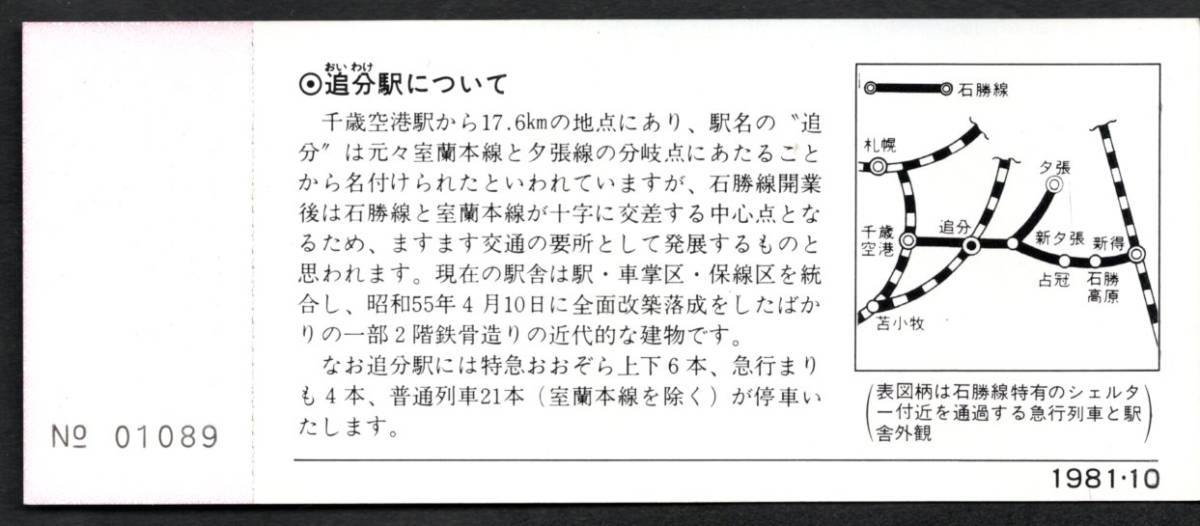 おいわけ
◉追分駅について
　千歳空港駅から17.6kmの地点にあり、駅名の〝追
分〟は元々室蘭本線と夕張線の分岐点にあたること
から名付けられたといわれていますが、石勝線開業
後は石勝線と室蘭本線が十字に交差する中心点とな
るため、ますます交通の要所として発展するものと
思われます。現在の駅舎は駅・車掌区・保線区を統
合し、昭和55年4月10日に全面改築落成をしたばか
りの一部2階鉄骨造りの近代的な建物です。
　なお追分駅には特急おおぞら上下6本、急行まり
も4本、普通列車21本（室蘭本線を除く）が停車い
たします。
№ 01089
石勝線
札幌
夕張
千歳
空港
追分
新夕張
新得
占冠
石勝
高原
苫小牧
（表図柄は石勝線特有のシェルタ
ー付近を通過する急行列車と駅
舎外観）
1981・10